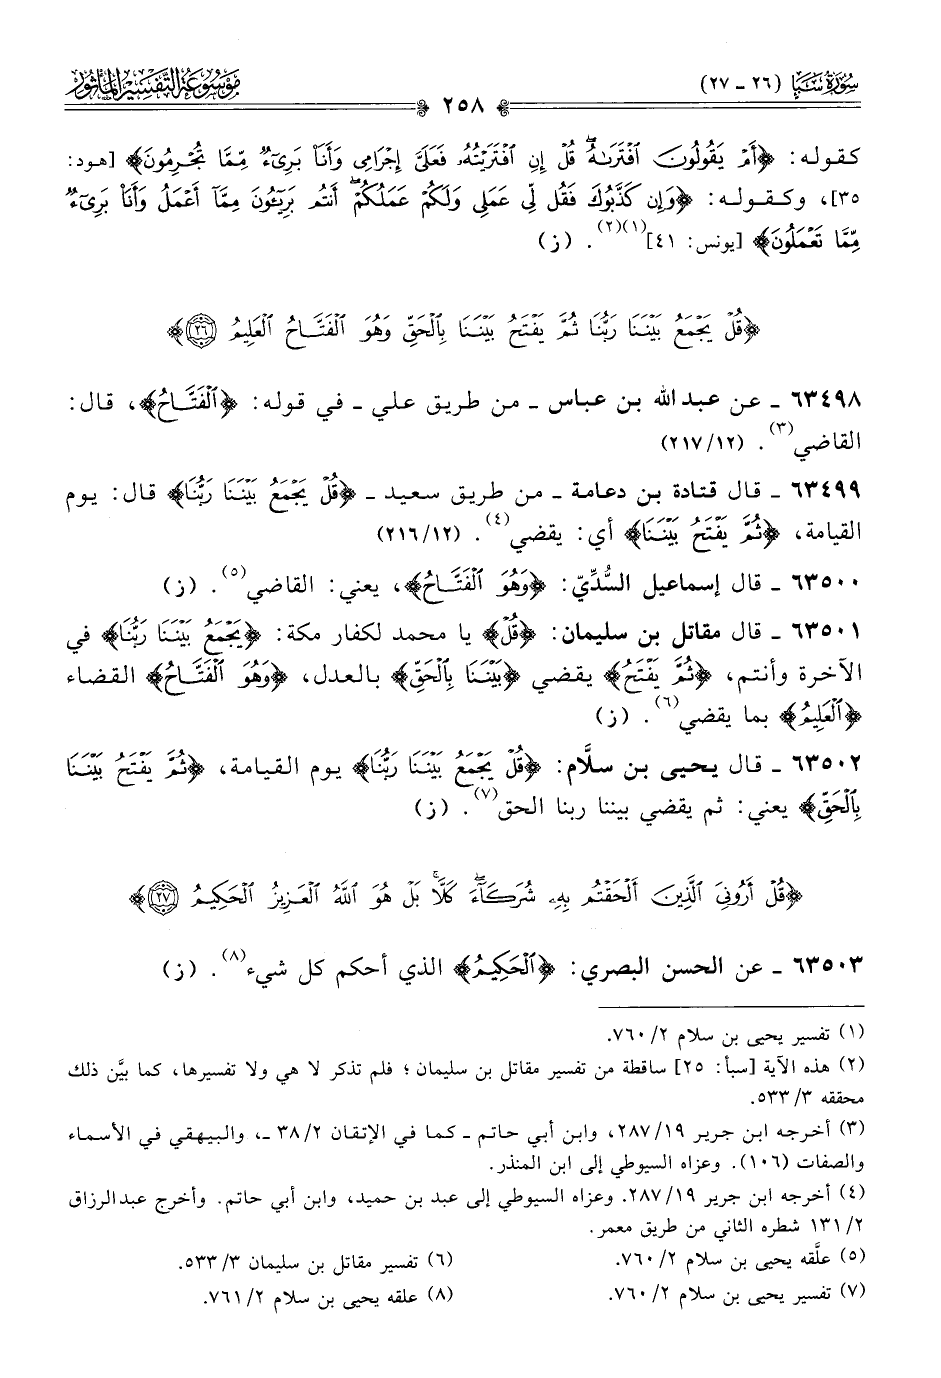 سورة سبإ (٢٦ - ٢٧)
٢٥٨
موسوعة التفسير المأثور
كقوله: ﴿أَمْ يَقُولُونَ ٱفْتَرَىٰهُ ۖ قُلْ إِنِ ٱفْتَرَيْتُهُۥ فَعَلَىَّ إِجْرَامِى وَأَنَا۠ بَرِىٓءٌ مِّمَّا تُجْرِمُونَ﴾ [هود:
٣٥]، وكقوله: ﴿وَإِن كَذَّبُوكَ فَقُل لِّى عَمَلِى وَلَكُمْ عَمَلُكُمْ ۖ أَنتُم بَرِيٓـُٔونَ مِمَّآ أَعْمَلُ وَأَنَا۠ بَرِىٓءٌ
مِّمَّا تَعْمَلُونَ﴾ [يونس: ٤١](١)(٢). (ز)
﴿قُلْ يَجْمَعُ بَيْنَنَا رَبُّنَا ثُمَّ يَفْتَحُ بَيْنَنَا بِٱلْحَقِّ وَهُوَ ٱلْفَتَّاحُ ٱلْعَلِيمُ ٢٦﴾
٦٣٤٩٨ - عن عبد الله بن عباس - من طريق علي - في قوله: ﴿ٱلْفَتَّاحُ﴾، قال:
القاضي(٣). (٢١٧/١٢)
٦٣٤٩٩ - قال قتادة بن دعامة - من طريق سعيد - ﴿قُلْ يَجْمَعُ بَيْنَنَا رَبُّنَا﴾ قال: يوم
القيامة، ﴿ثُمَّ يَفْتَحُ بَيْنَنَا﴾ أي: يقضي(٤). (٢١٦/١٢)
٦٣٥٠٠ - قال إسماعيل السُّدِّيّ: ﴿وَهُوَ ٱلْفَتَّاحُ﴾، يعني: القاضي(٥). (ز)
٦٣٥٠١ - قال مقاتل بن سليمان: ﴿قُلْ﴾ يا محمد لكفار مكة: ﴿يَجْمَعُ بَيْنَنَا رَبُّنَا﴾ في
الآخرة وأنتم، ﴿ثُمَّ يَفْتَحُ﴾ يقضي ﴿بَيْنَنَا بِٱلْحَقِّ﴾ بالعدل، ﴿وَهُوَ ٱلْفَتَّاحُ﴾ القضاء
﴿ٱلْعَلِيمُ﴾ بما يقضي(٦). (ز)
٦٣٥٠٢ - قال يحيى بن سلَّام: ﴿قُلْ يَجْمَعُ بَيْنَنَا رَبُّنَا﴾ يوم القيامة، ﴿ثُمَّ يَفْتَحُ بَيْنَنَا
بِٱلْحَقِّ﴾ يعني: ثم يقضي بيننا ربنا الحق(٧). (ز)
﴿قُلْ أَرُونِىَ ٱلَّذِينَ أَلْحَقْتُم بِهِۦ شُرَكَآءَ ۖ كَلَّا ۚ بَلْ هُوَ ٱللَّهُ ٱلْعَزِيزُ ٱلْحَكِيمُ ٢٧﴾
٦٣٥٠٣ - عن الحسن البصري: ﴿ٱلْحَكِيمُ﴾ الذي أحكم كل شيء(٨). (ز)
(١) تفسير يحيى بن سلام ٢/ ٧٦٠.
(٢) هذه الآية [سبأ: ٢٥] ساقطة من تفسير مقاتل بن سليمان؛ فلم تذكر لا هي ولا تفسيرها، كما بيَّن ذلك
محققه ٣/ ٥٣٣.
(٣) أخرجه ابن جرير ١٩/ ٢٨٧، وابن أبي حاتم - كما في الإتقان ٢/ ٣٨ -، والبيهقي في الأسماء
والصفات (١٠٦). وعزاه السيوطي إلى ابن المنذر.
(٤) أخرجه ابن جرير ١٩/ ٢٨٧. وعزاه السيوطي إلى عبد بن حميد، وابن أبي حاتم. وأخرج عبدالرزاق
٢/ ١٣١ شطره الثاني من طريق معمر.
(٥) علَّقه يحيى بن سلام ٢/ ٧٦٠. (٦) تفسير مقاتل بن سليمان ٣/ ٥٣٣.
(٧) تفسير يحيى بن سلام ٢/ ٧٦٠. (٨) علقه يحيى بن سلام ٢/ ٧٦١.